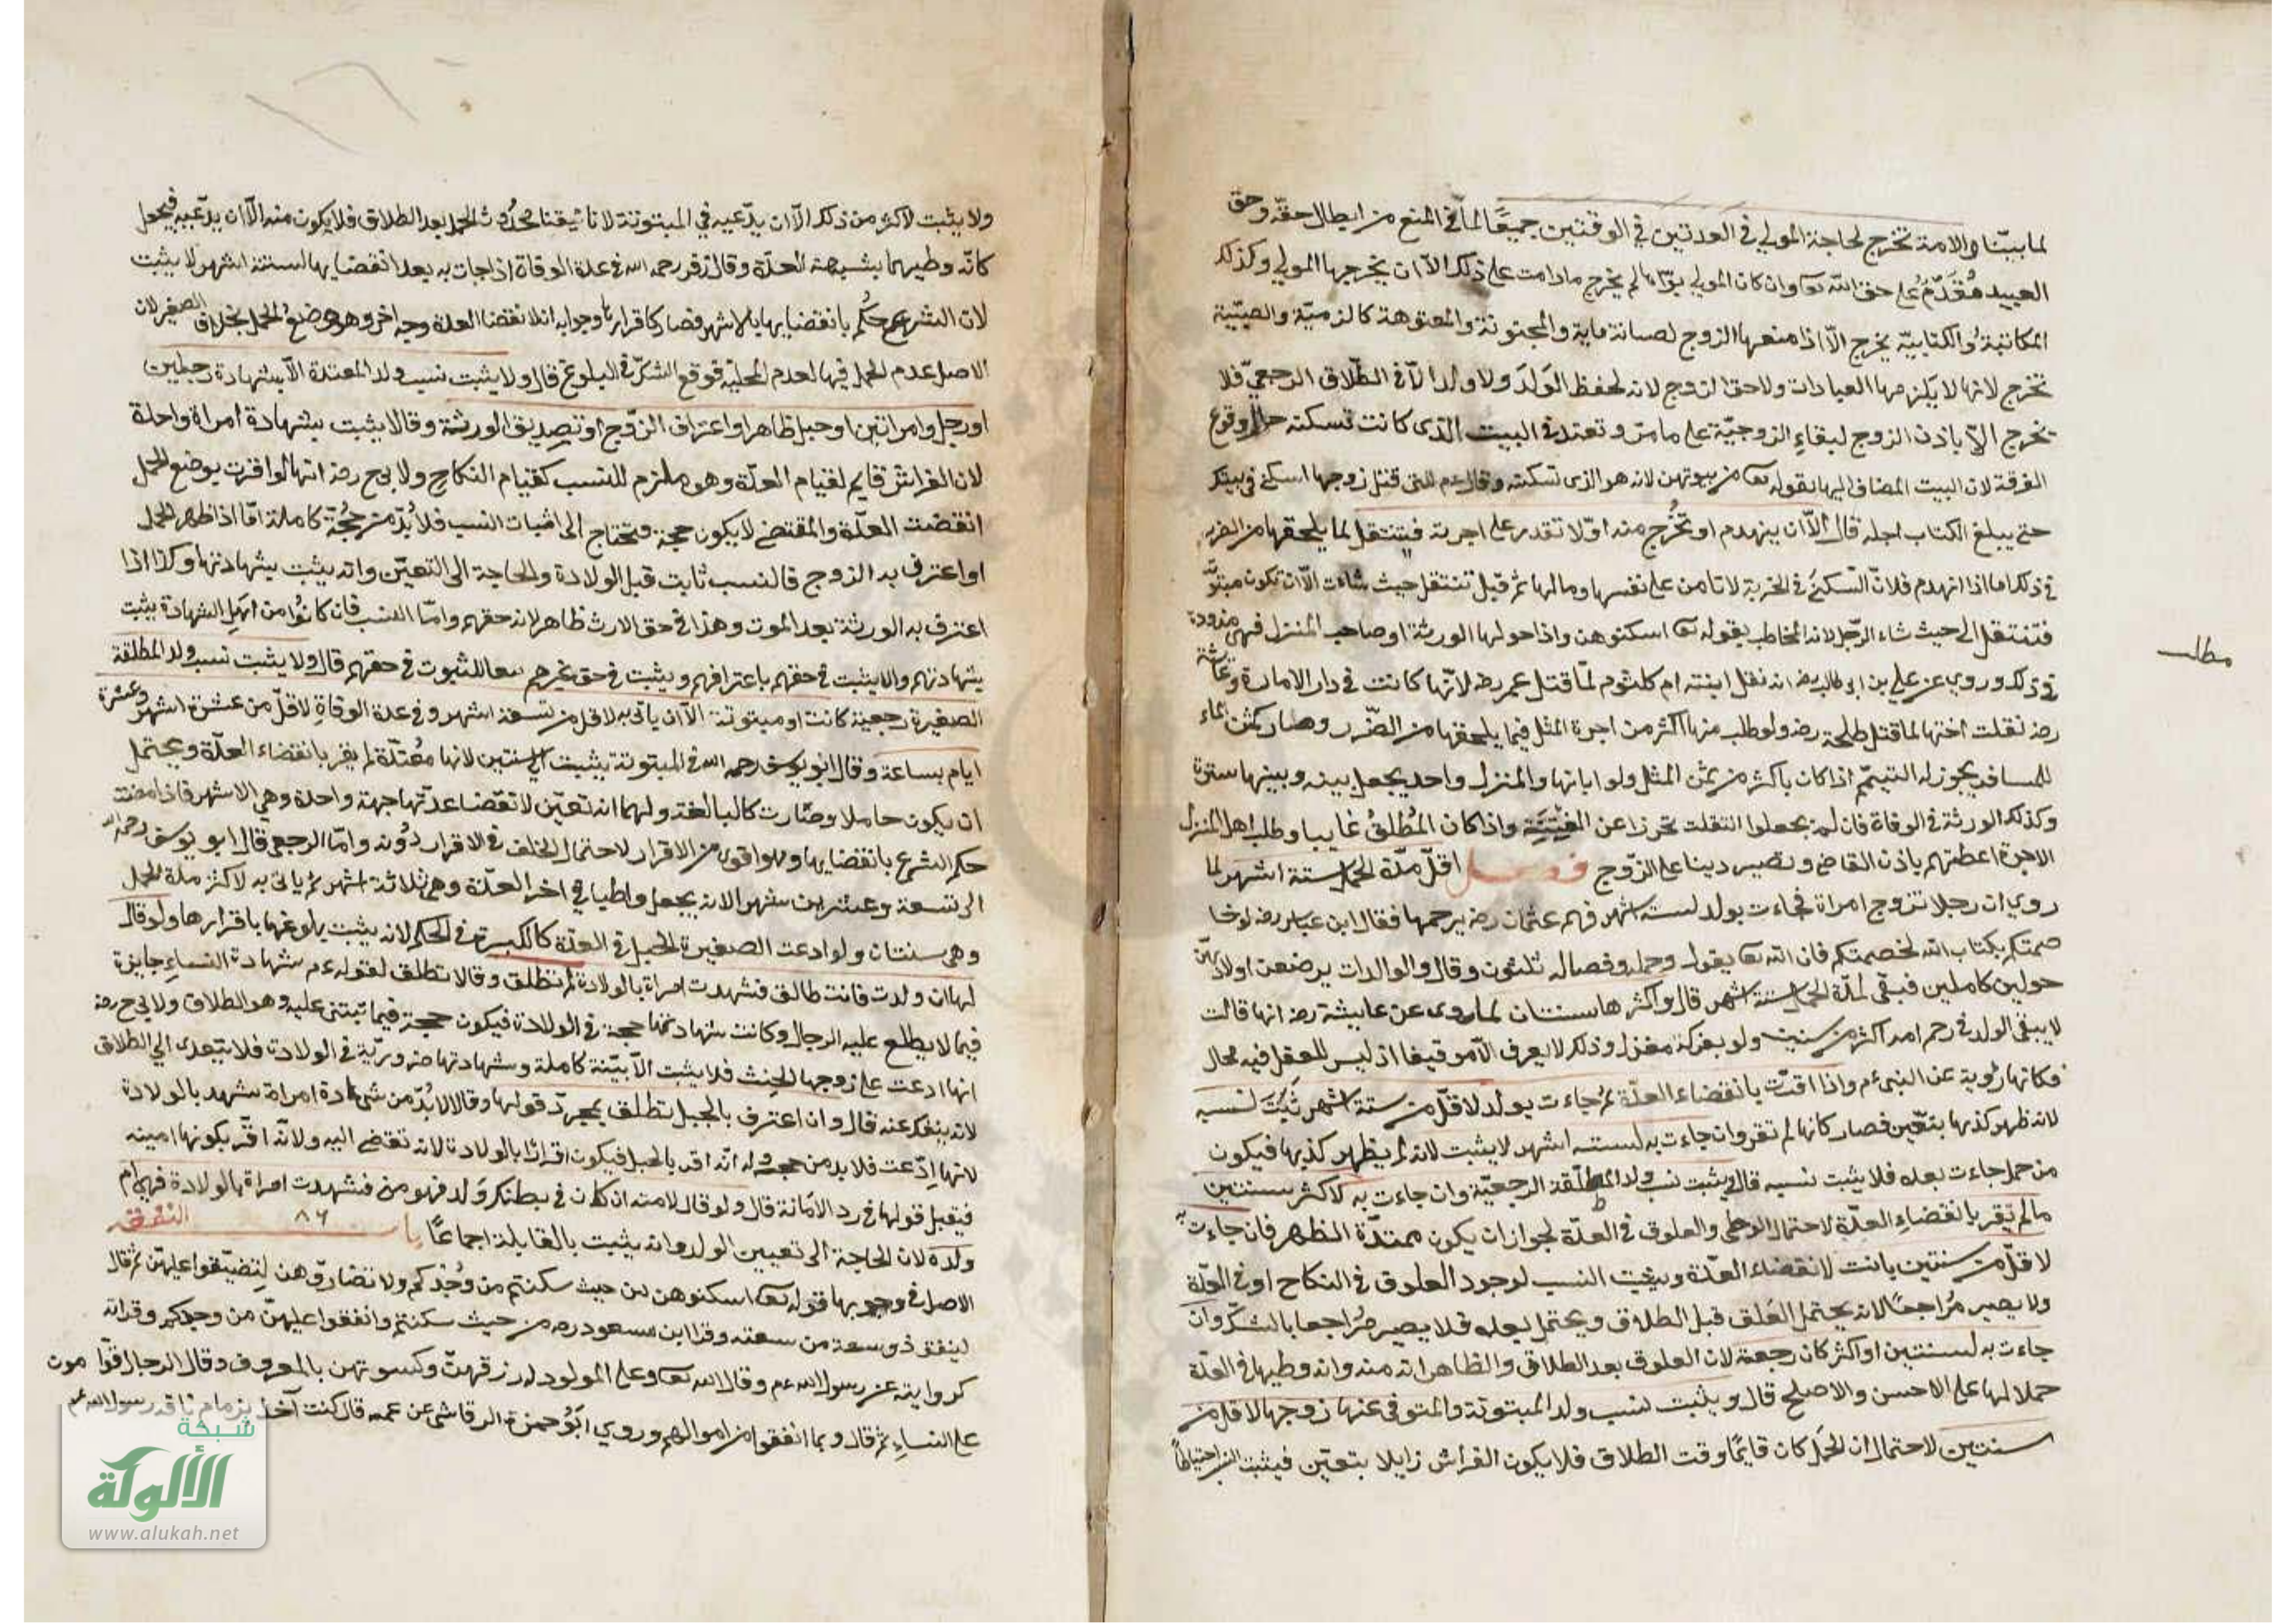 لما بينا والامة تخرج لحاجة المولي في العدتين في الوقتين جميعًا لما في المنع من ابطال حقه وحق
العبيد مُقَدَّمٌ على حق الله تعـ وان كان المولي بوّاها لم يخرج مادامت على ذلك الا ان يخرجها المولي وكذلك
المكاتبةُ والكتابيّة يخرج الّا اذا منعها الزوج لصيانة مايه والمجنونة والمعتوهة كالزميّة والصبيّة
تخرج لانها لا يَلزمها العبادات ولا حق الزوج لانه لحفظ الوَلَدَ ولا ولد الّا في الطّلاق الرجعيّ فلا
يخرج الّا باذن الزوج لبقاءِ الزوجيّة على ما مرّ وتعتد في البيت الذى كانت تسكنه حال وقوع
الفرقة لان البيت المضاف اليها بقوله تعـ من بيوتهن لانه هو الذى تسكنه وقال ءم للتى قتل زوجها اسكنى فى بيتك
حتى يبلغ الكتاب اجله قال الّا ان ينهدم او تُخْرج منه او لا تقدر على اجرته فتنتقل لما يلحقها من الضرر
فى ذلك اما اذا انهدم فلانّ السكنَى فى الخربة لا تامن على نفسها ومالها ثم قيل تنتقل حيث شاءت الّا ان تكون مبتوتَة
فتنتقل الى حيث شاء الرّجل لانه المخاطب بقوله تعـ اسكنوهن واذا حولها الورثة او صاحب المنزل فهى معذورة
فى ذلك وروي عن علي بن ابى طالب رضـ انه نقل ابنته ام كلثوم لمّا قتل عمر رضـ لانّها كانت فى دار الامارة وعائشة
رضـ نقلت اختها لما قتل طلحة رضـ ولو طلب منها اكثر من اجرة المثل فيما يلحقها من الضّرر وصار كثمن الماء
للمسافر يجوز له التيمّم اذا كان باكثر من ثمن المثل ولو ابانها والمنزل واحد يجعل بينه وبينها سترة
وكذلك الورثة فى الوفاة فان لم يجعلوا انتقلت تحرزا عن الفتنة واذا كان المُطلقُ غايبا وطلب اهل المنزل
الاجرة اعطتهم باذن القاضى وتصير دينا على الزّوج فصل اقلّ مدّة الحمل ستة اشهر لما
روي ان رجلا تزوج امراة فجاءت بولد لستة اشهر فهم عثمان رضـ برجمها فقال ابن عباس رضـ لو خا
صمتكم بكتاب الله لخصمتكم فان الله تعـ يقول وحمله وفصاله ثلثون وقال والوالدات يرضعن اولادهنّ
حولين كاملين فبقى لمدّة الحمل ستة اشهر قال واكثرها سنتان لما روى عن عايشة رضـ انها قالت
لا يبقى الولد فى رحم امه اكثر من سنتين ولو بفركة مغزل وذلك لا يعرف الّا توقيفا اذ ليس للعقل فيه مجال
فكانها روية عن النبىءم واذا اقرّت بانقضاء العدّة ثم جاءت بولد لاقلّ من ستة اشهر ثبت نسبه
لانه ظهر كذبها بتعّين فصار كانها لم تقر وان جاءت به لستـه اشهر لا يثبت لانه لم يظهر كذبها فيكون
من حمل جاءت بعده فلا يثبت نسبه قال ويثبت نسب ولد المطلّقة الرجعيّة وان جاءت به لاكثر سنتين
مالم تقر بانقضاءِ العدّة لاحتمال الوطى والعلوق فى العدّة لجواز ان يكون ممتدّة الطهر فان جاءت به
لاقلّ من سنتين بانت لانقضاء العدّة ويثبت النسب لوجود العلوق فى النكاح او فى العدّة
ولا يصير مُراجعًا لانه يحتمل العَلق قبل الطلاق ويحتمل بعده فلا يصير مُراجعا بالشكّ وان
جاءت به لسنتين او اكثر كان رجعة لان العلوق بعد الطلاق والظاهر انه منه وانه وطيها فى العدّة
حملا لها على الاحسن والاصلح قال ويثبت نسب ولد المبتوتة والمتوفى عنها زوجها لاقل من
سنتين لاحتمال ان الحَمل كان قايمًا وقت الطلاق فلا يكون الفراش زايلا بتعيّن فيثبت النسب احتياطاً
مطلب
ولا يثبت لاكثر من ذلك الّا ان يدّعيه فى المبتوتة لانا تيقنا بحُدُوث الحمل بعد الطلاق فلا يكون منه الّا ان يدّعيه فيجعل
كانّه وطيها بشبهة العدّة وقال زفر رحمه الله فى عدة الوفاة اذا جات به بعد انقضايها لستة اشهر لا يثبت
لان الشرع حكم بانقضايها بالاشهر فصار كاقرارها وجوابه ان لانقضا العدة وجه اخر وهو وضع الحمل بخلاف الصغير لان
الاصل عدم الحمل فيها لعدم المحلية فوقع الشكّ فى البلوغ قال ولا يثبت نسب ولد المعتدة الّا بشهادة رجلين
او رجل وامراتين او حبل ظاهر او اعتراف الزّوج او تصديق الورثة وقالا يثبت بشهادة امراة واحدة
لان الفراش قايم لقيام العدّة وهو ملزم للنسب كقيام النكاح ولابى ح رضـ انها لو اقرت بوضع الحمل
انقضت العدّة والمقتضى لا يكون حجة فتحتاج الى اثبات النسب فلا بُدّ من حُجّة كاملة امّا اذا ظهر الحمل
او اعترف به الزوج فالنسب ثابت قبل الولادة والحاجة الى التعيّن وانه يثبت بشهادتها وكذا اذا
اعترف به الورثة بعد الموت وهذا فى حق الارث ظاهر لانه حقهم وامّا النسب فان كانوُا من اهل الشهادة يثبت
بشهادتهم والا يثبت فى حقهم باعترافهم ويثبت فى حق غيرهم تبعا للثبوت فى حقهم قال ولا يثبت نسب ولد المطلقة
الصغيرة رجعية كانت او مبتوتة الّا ان ياتى به لاقل من تسعة اشهر وفى عدة الوفاةِ لاقلّ من عشرة اشهر وعشرة
ايام بساعة وقال ابو يوسف رحمه الله فى المبتوتة يثبت الى سنتين لانها مُعْتدّة لم يقر بانقضاء العدّة ويحتمل
ان يكون حاملا وصّارت كالبالغة ولهما انه تعيّن لانقضا عدّتها جهة واحدة وهى الاشهر فاذا مضت
حكم الشرع بانقضايها وهو اقوى من الاقرار لاحتمال الخلف فى الاقرار دُونه وامّا الرجعى قال ابو يوسف رحمه الله
الى تسعة وعشرين شهرا لانه يجعل واطيا فى اخر العدّة وهى ثلاثة اشهر ثم ياتى به لاكثر مدة الحمل
وهى سنتان ولو ادعت الصغيرة الحمل فى العدّة كالكبيرة فى الحكم لانه يثبت بلوغها باقرارها ولو قال
لها ان ولدت فانت طالق فشهدت امراة بالولادة لم تطلق وقالا تطلق لقوله ءم شهادة النساءِ جايزة
فيما لا يطلع عليه الرجال وكانت شهادتها حجة فى الولادة فيكون حجة فيما تبتنى عليه وهو الطلاق ولابى ح رضـ
انها ادعت على زوجها الحِنث فلا يثبت الّا بيّنة كاملة وشهادتها ضروريّة فى الولادة فلا يتعدى الي الطلاق
لانه ينفك عنه قال وان اعترف بالحبل تطلق بمجردّ قولها وقالا لا بُدّ من شهادة امراة تشهد بالولادة
لانها ادّعت فلا بد من حجة وله انّه اقر بالحبل فيكون اقرارًا بالولادة لانه تفضى اليه ولانّه اقرّ بكونها امينه
فيقبل قولها فى رد الامَانة قال ولو قال لامته ان كان فى بطنك وَلد فهو من فشهدت امراة بالولادة فهى ام
ولده لان الحاجة الى تعيين الولد وانه يثبت بالقابلة اجماعًا باب ٨٦ النفقة
الاصل فى وجوبها قوله تعـ اسكنوهن من حيث سكنتم من وُجْدكم ولا تضارّوهن لِتضيّقوا عليهنّ ثم قال
لينفق ذو سعة من سعته وقرا ابن مسعود رضـ من حيث سكنتم وانفقوا عليهنّ من وجدكم وقراته
كروايته عن رسول الله ءم وقال الله تعـ وعلى المولود له رزقهنّ وكسوتهن بالمعروف وقال الرجال قوّامون
على النساءِ ثم قال وبما انفقوا من اموالهم وروي ابَوُ حمزة الرقاشى عن عمه قال كنت آخذ بزمام ناقة رسول الله ءم
شبكة
الألوكة
www.alukah.net